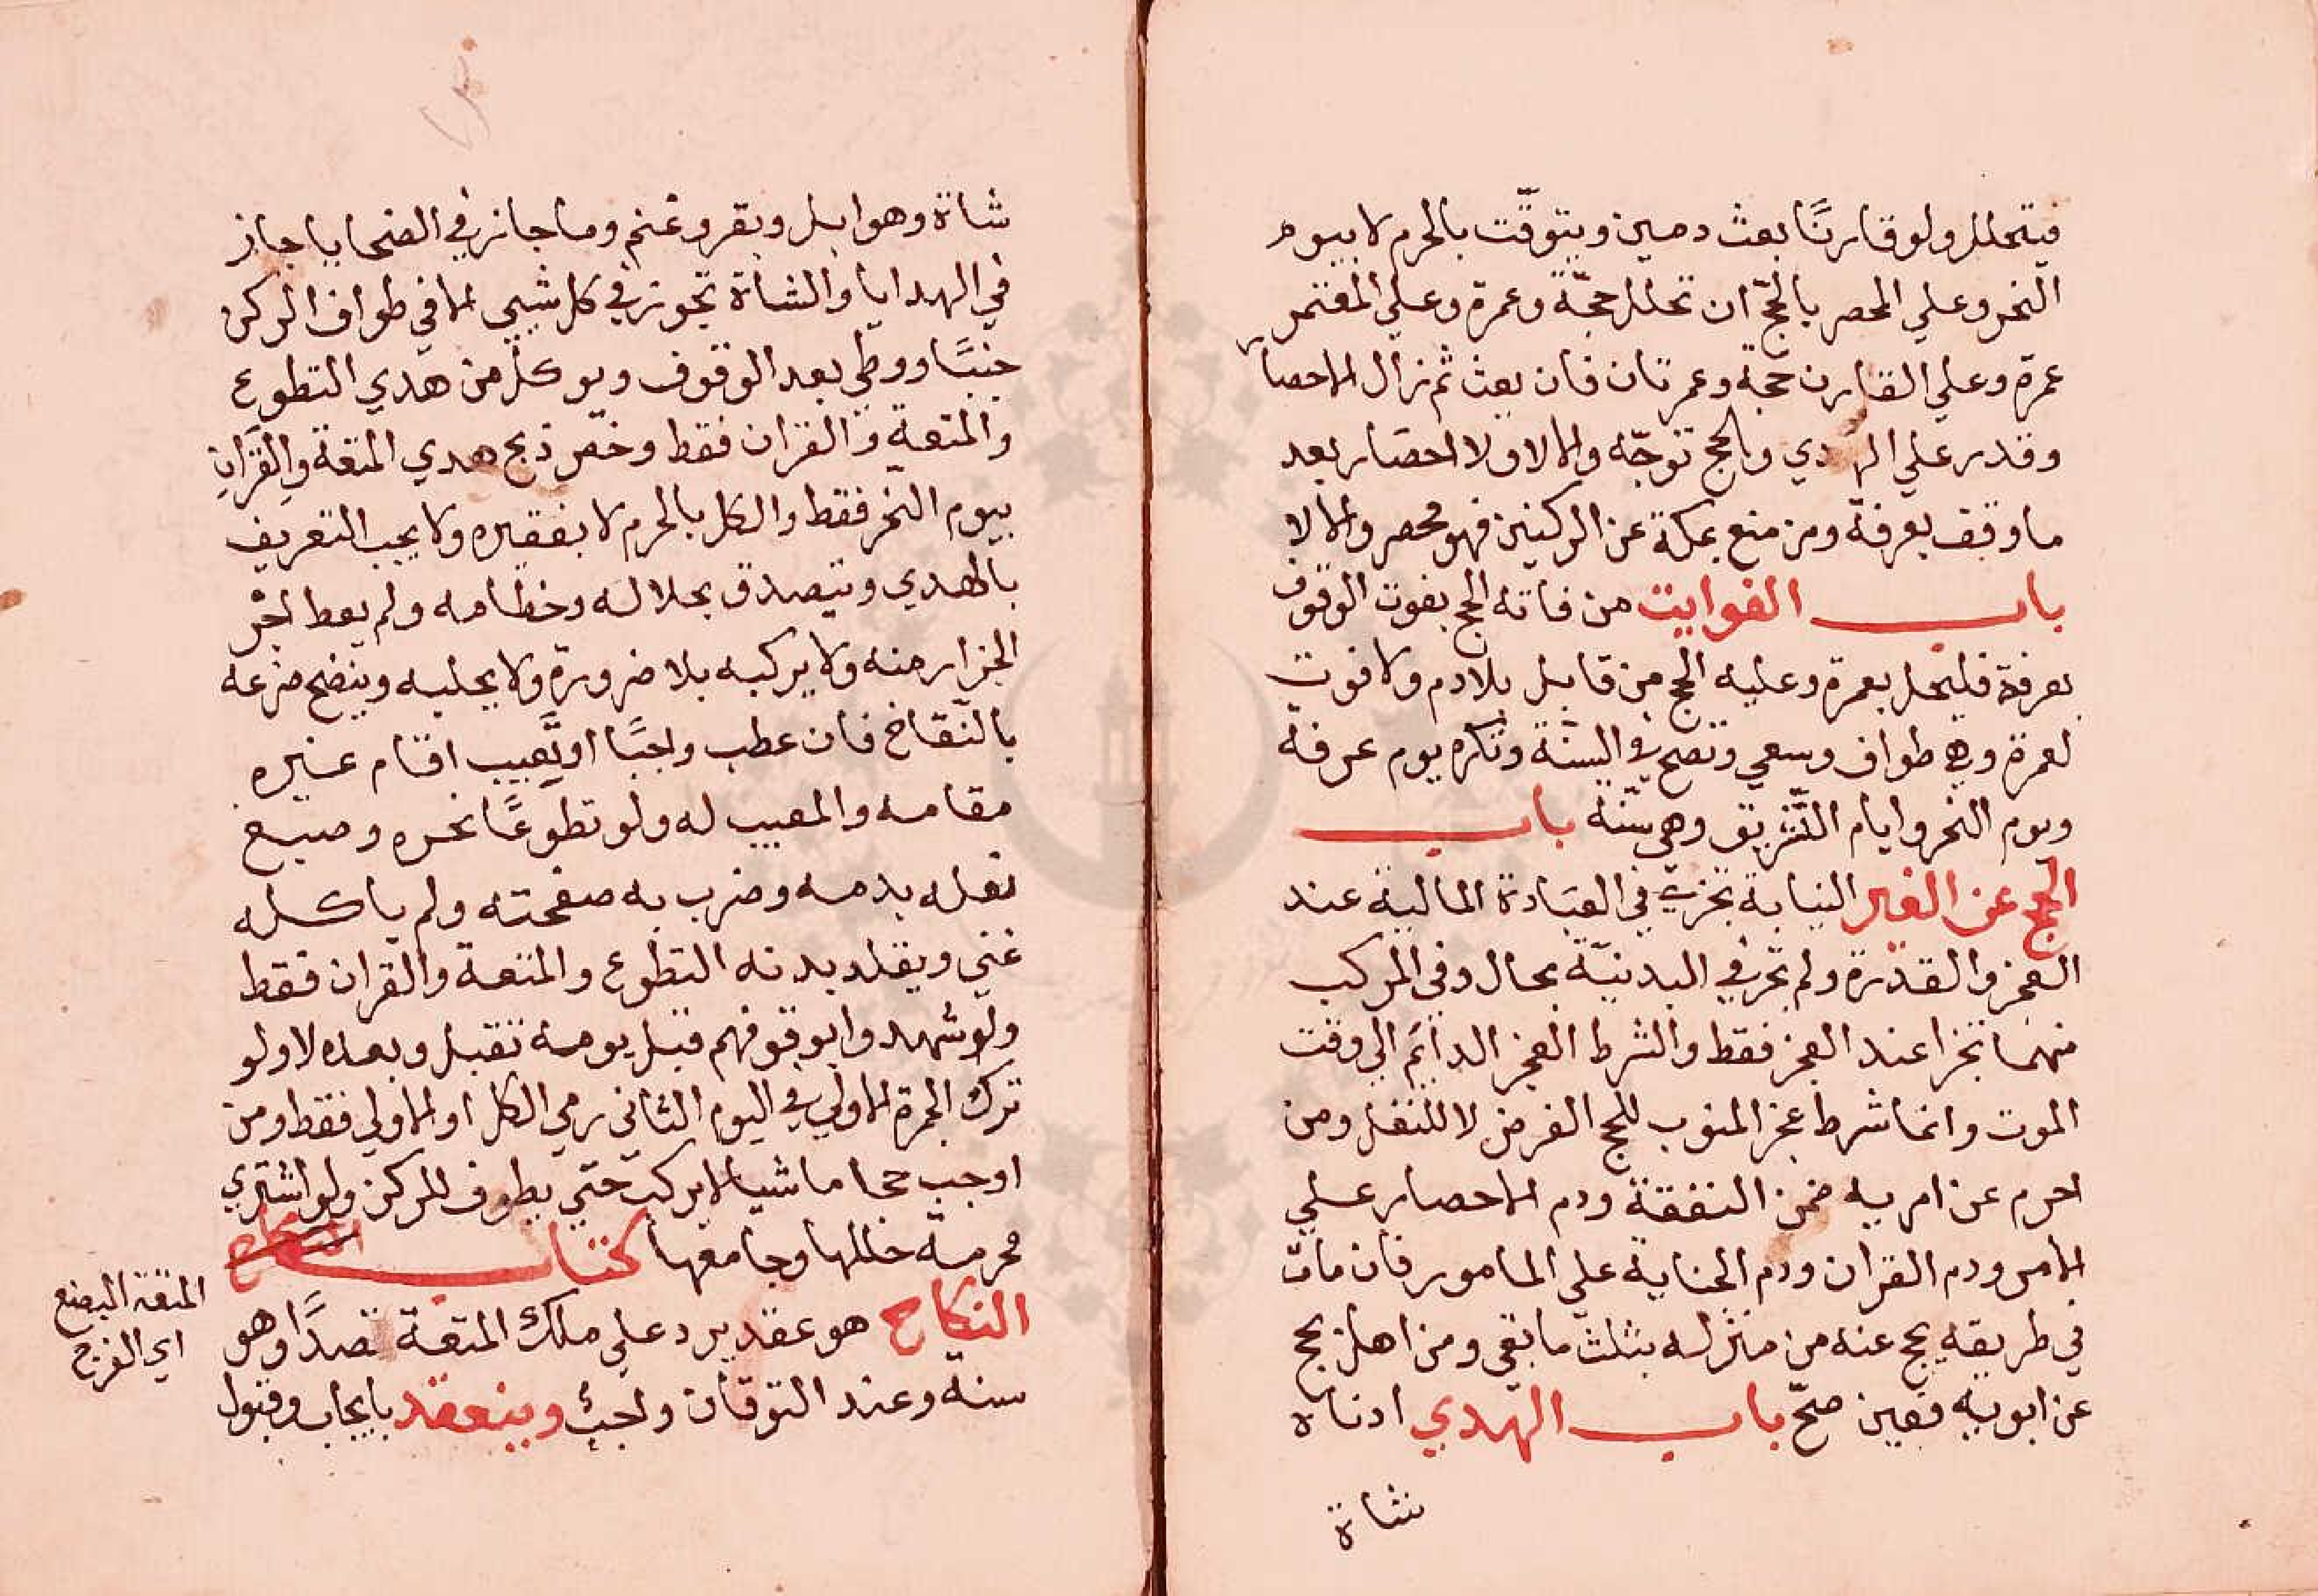 فيتحلل ولو قارنًا بعث دمين ويتوقّت بالحرم لا بيوم
النحر وعلي المحصر بالحجّ ان تحلل حجّة وعمرة وعلي المعتمر
عمرة وعلي القارن حجة وعمرتان فان بعث ثم زال الاحصار
وقدر علي الهدي والحج توجّه والا لا ولا احصار بعد
ما وقف بعرفة ومن منع بمكة عن الركنين فهو محصر والا لا
باب الفوايت من فاته الحج بفوت الوقوف
بعرفة فليحل بعمرة وعليه الحج من قابل بلا دم ولا فوت
لعمرة وهي طواف وسعي وتصح في السنة وتكره يوم عرفة
ويوم النحر وايام التّشريق وهي سنّة باب
الحج عن الغير النيابة تجزي في العبادة المالية عند
العجز والقدرة ولم تجز في البدنيّة بحال وفي المركب
منهما تجزا عند العجز فقط والشرط العجز الدايم الي وقت
الموت وانما شرط عجز المنوب للحج الفرض لا للنفل ومن
احرم عن امريه ضمن النفقة ودم الاحصار علي
الامر ودم القران ودم الجناية علي المامور فان مات
في طريقه يحج عنه من منزله بثلث ما بقي ومن اهل بحج
عن ابويه فعين صحّ باب الهدي ادناه
شاة
شاة وهو ابل وبقر وغنم وما جاز في الضحايا جاز
في الهدايا والشاة تجوز في كل شيي الا في طواف الركن
جنبًا ووطي بعد الوقوف ويوكل من هدي التطوع
والمتعة والقران فقط وخص ذبح هدي المتعة والقران
بيوم النحر فقط والكل بالحرم لا بفقيره ولا يجب التعريف
بالهدي ويتصدق بجلاله وخطامه ولم يعط اجر
الجزار منه ولا يركبه بلا ضرورة ولا يحلبه وينضح ضرعه
بالنّقاخ فان عطب واجبًا او تعيب اقام غيره
مقامه والمعيب له ولو تطوعًا نحره وصبغ
نعله بدمه وضرب به صفحته ولم ياكله
غني ويقلد بدنه التطوع والمتعة والقران فقط
ولو شهدوا بوقوفهم قبل يومه تقبل وبعده لا ولو
ترك الجمرة الاولي في اليوم الثاني رمي الكل او الاولي فقط ومن
اوجب حجا ماشيا لا يركب حتي يطوف للركن ولو اشتري
محرمة حللها وجامعها كتاب النكاح
النكاح هو عقد يرد علي ملك المتعة قصدًا وهو
سنة وعند التوقان واجب وينعقد بايجاب وقبول
المتعة البضع
اي الفرج